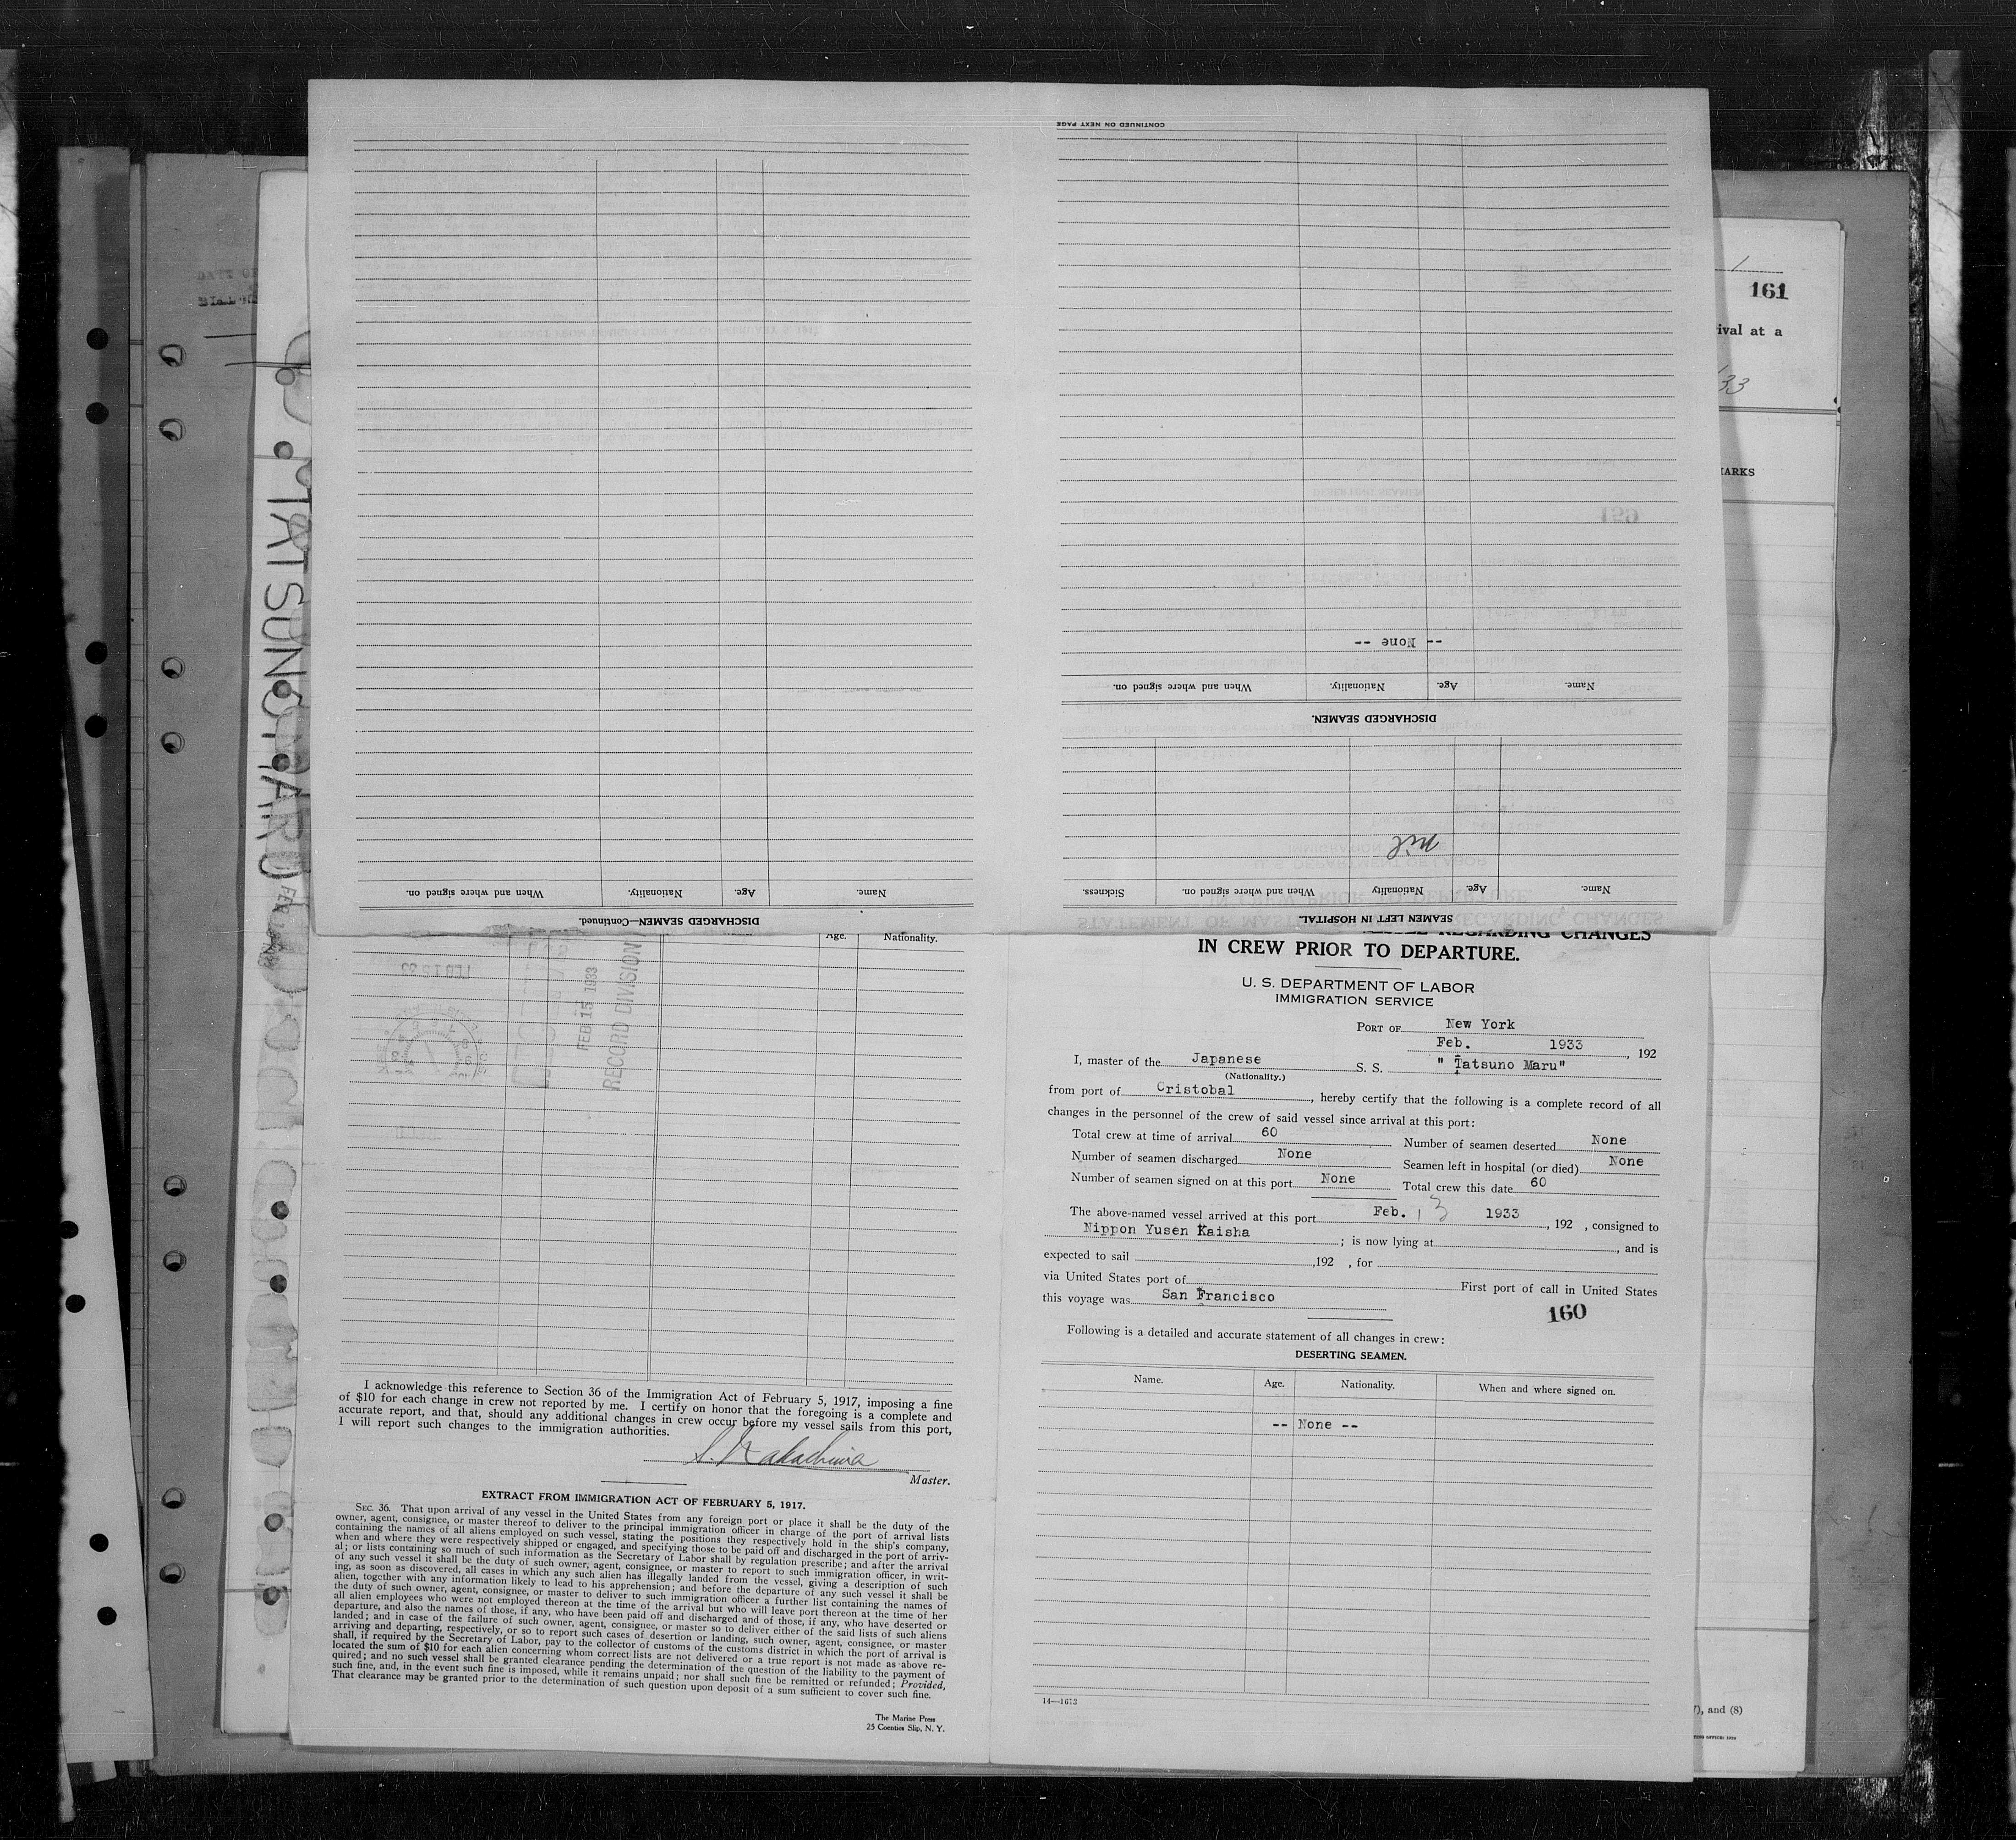 CONTINUED ON NEXT PAGE
-- None --
Name. Age. Nationality. When and where signed on.
DISCHARGED SEAMEN.
nil
Name. Age. Nationality When and where signed on. Sickness.
SEAMEN LEFT IN HOSPITAL.
Name. Age. Nationality. When and where signed on.
DISCHARGED SEAMEN—Continued.
161
rival at a
33
MARKS
), and (8)
TATSUNO MARU
Age. Nationality.
FEB 15 1933
RECORD DIVISION
I acknowledge this reference to Section 36 of the Immigration Act of February 5, 1917, imposing a fine
of $10 for each change in crew not reported by me. I certify on honor that the foregoing is a complete and
accurate report, and that, should any additional changes in crew occur before my vessel sails from this port,
I will report such changes to the immigration authorities.
Master.
EXTRACT FROM IMMIGRATION ACT OF FEBRUARY 5, 1917.
SEC. 36. That upon arrival of any vessel in the United States from any foreign port or place it shall be the duty of the
owner, agent, consignee, or master thereof to deliver to the principal immigration officer in charge of the port of arrival lists
containing the names of all aliens employed on such vessel, stating the positions they respectively hold in the ship's company,
when and where they were respectively shipped or engaged, and specifying those to be paid off and discharged in the port of arriv-
al; or lists containing so much of such information as the Secretary of Labor shall by regulation prescribe; and after the arrival
of any such vessel it shall be the duty of such owner, agent, consignee, or master to report to such immigration officer, in writ-
ing, as soon as discovered, all cases in which any such alien has illegally landed from the vessel, giving a description of such
alien, together with any information likely to lead to his apprehension; and before the departure of any such vessel it shall be
the duty of such owner, agent, consignee, or master to deliver to such immigration officer a further list containing the names of
all alien employees who were not employed thereon at the time of the arrival but who will leave port thereon at the time of her
departure, and also the names of those, if any, who have been paid off and discharged and of those, if any, who have deserted or
landed; and in case of the failure of such owner, agent, consignee, or master so to deliver either of the said lists of such aliens
arriving and departing, respectively, or so to report such cases of desertion or landing, such owner, agent, consignee, or master
shall, if required by the Secretary of Labor, pay to the collector of customs of the customs district in which the port of arrival is
located the sum of $10 for each alien concerning whom correct lists are not delivered or a true report is not made as above re-
quired; and no such vessel shall be granted clearance pending the determination of the question of the liability to the payment of
such fine, and, in the event such fine is imposed, while it remains unpaid; nor shall such fine be remitted or refunded; Provided,
That clearance may be granted prior to the determination of such question upon deposit of a sum sufficient to cover such fine.
The Marine Press
25 Coenties Slip, N. Y.
REGARDING CHANGES
IN CREW PRIOR TO DEPARTURE.
U. S. DEPARTMENT OF LABOR
IMMIGRATION SERVICE
PORT OF New York
Feb. 1933, 192
I, master of the Japanese S. S. " Tatsuno Maru"
(Nationality.)
from port of Cristobal, hereby certify that the following is a complete record of all
changes in the personnel of the crew of said vessel since arrival at this port:
Total crew at time of arrival 60 Number of seamen deserted None
Number of seamen discharged None Seamen left in hospital (or died) None
Number of seamen signed on at this port None Total crew this date 60
The above-named vessel arrived at this port Feb. 13 1933, 192 , consigned to
Nippon Yusen Kaisha; is now lying at, and is
expected to sail ,192 , for
via United States port of First port of call in United States
this voyage was San Francisco
160
Following is a detailed and accurate statement of all changes in crew:
DESERTING SEAMEN.
Name. Age. Nationality. When and where signed on.
-- None --
14—1673